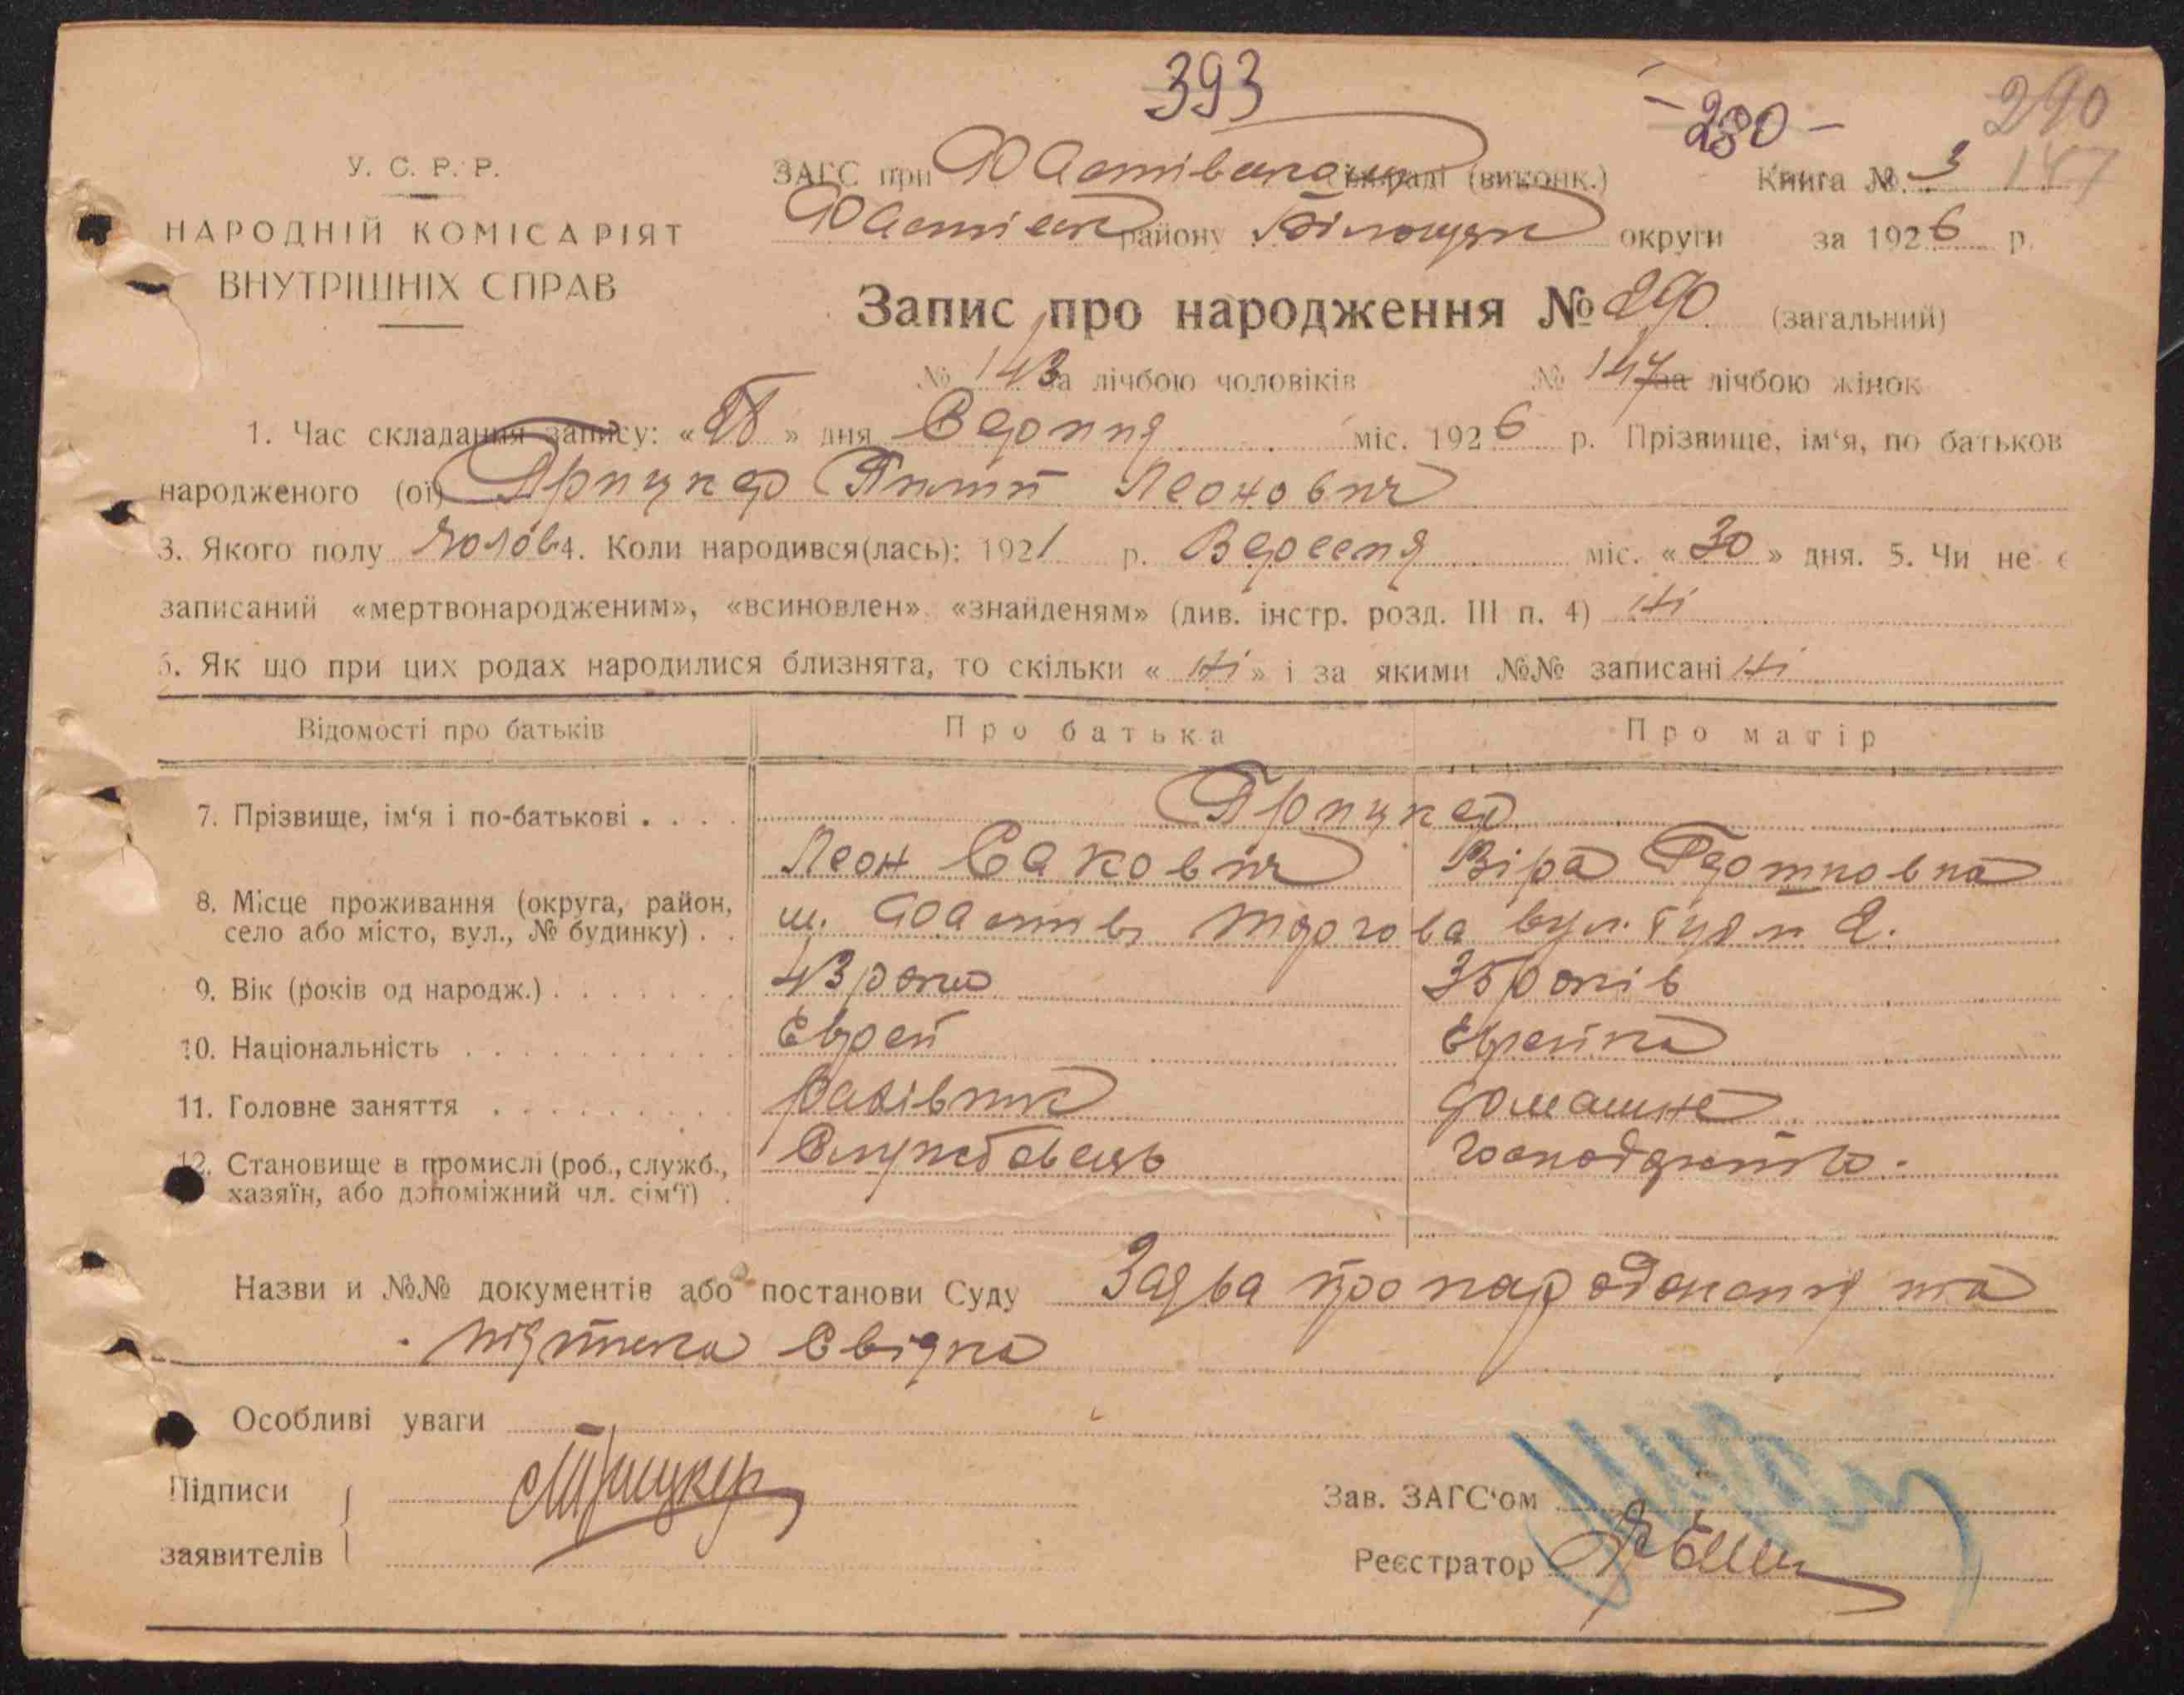 393
- 280 -
290
У. С. Р. Р.
ЗАГС при Фастівському (виконк.)
Книга № 3
147
Фастівськ району Білоцерк округи
за 1926 р.
НАРОДНІЙ КОМІСАРІЯТ
ВНУТРІШНІХ СПРАВ
Запис про народження № 290 (загальний)
№ 143 за лічбою чоловіків № 147 за лічбою жінок
1. Час складання запису: « » дня Серпня міс. 1926 р. Прізвище, ім‘я, по батьков
народженого (ої) Прицкер Леонович
3. Якого полу Чолов 4. Коли народився(лась): 1921 р. Вересня міс. «30» дня. 5. Чи не є
записаний «мертвонародженим», «всиновлен» «знайденям» (див. інстр. розд. III п. 4) Ні
6. Як що при цих родах народилися близнята, то скільки « Ні » і за якими №№ записані Ні
Відомості про батьків Про батька Про матір
7. Прізвище, ім‘я і по-батькові . . . . Прицкер
Леон Сакович Віра
8. Місце проживання (округа, район,
село або місто, вул., № будинку) . . м. Фастів Торгова вул. буд. № 2.
9. Вік (років од народж.) . . . . . . . 43 роки 35 років
10. Національність . . . . . . . . . . Еврей Еврейка
11. Головне заняття . . . . . . . . . рахівник домашне
12. Становище в промислі (роб., служб.,
хазяїн, або допоміжний чл. сім‘ї) . Службовець господарство.
Назви и №№ документів або постанови Суду Заява про народження та
підписка Свідка
Особливі уваги
Підписи
заявителів
Прицкер
Зав. ЗАГС‘ом
Реєстратор